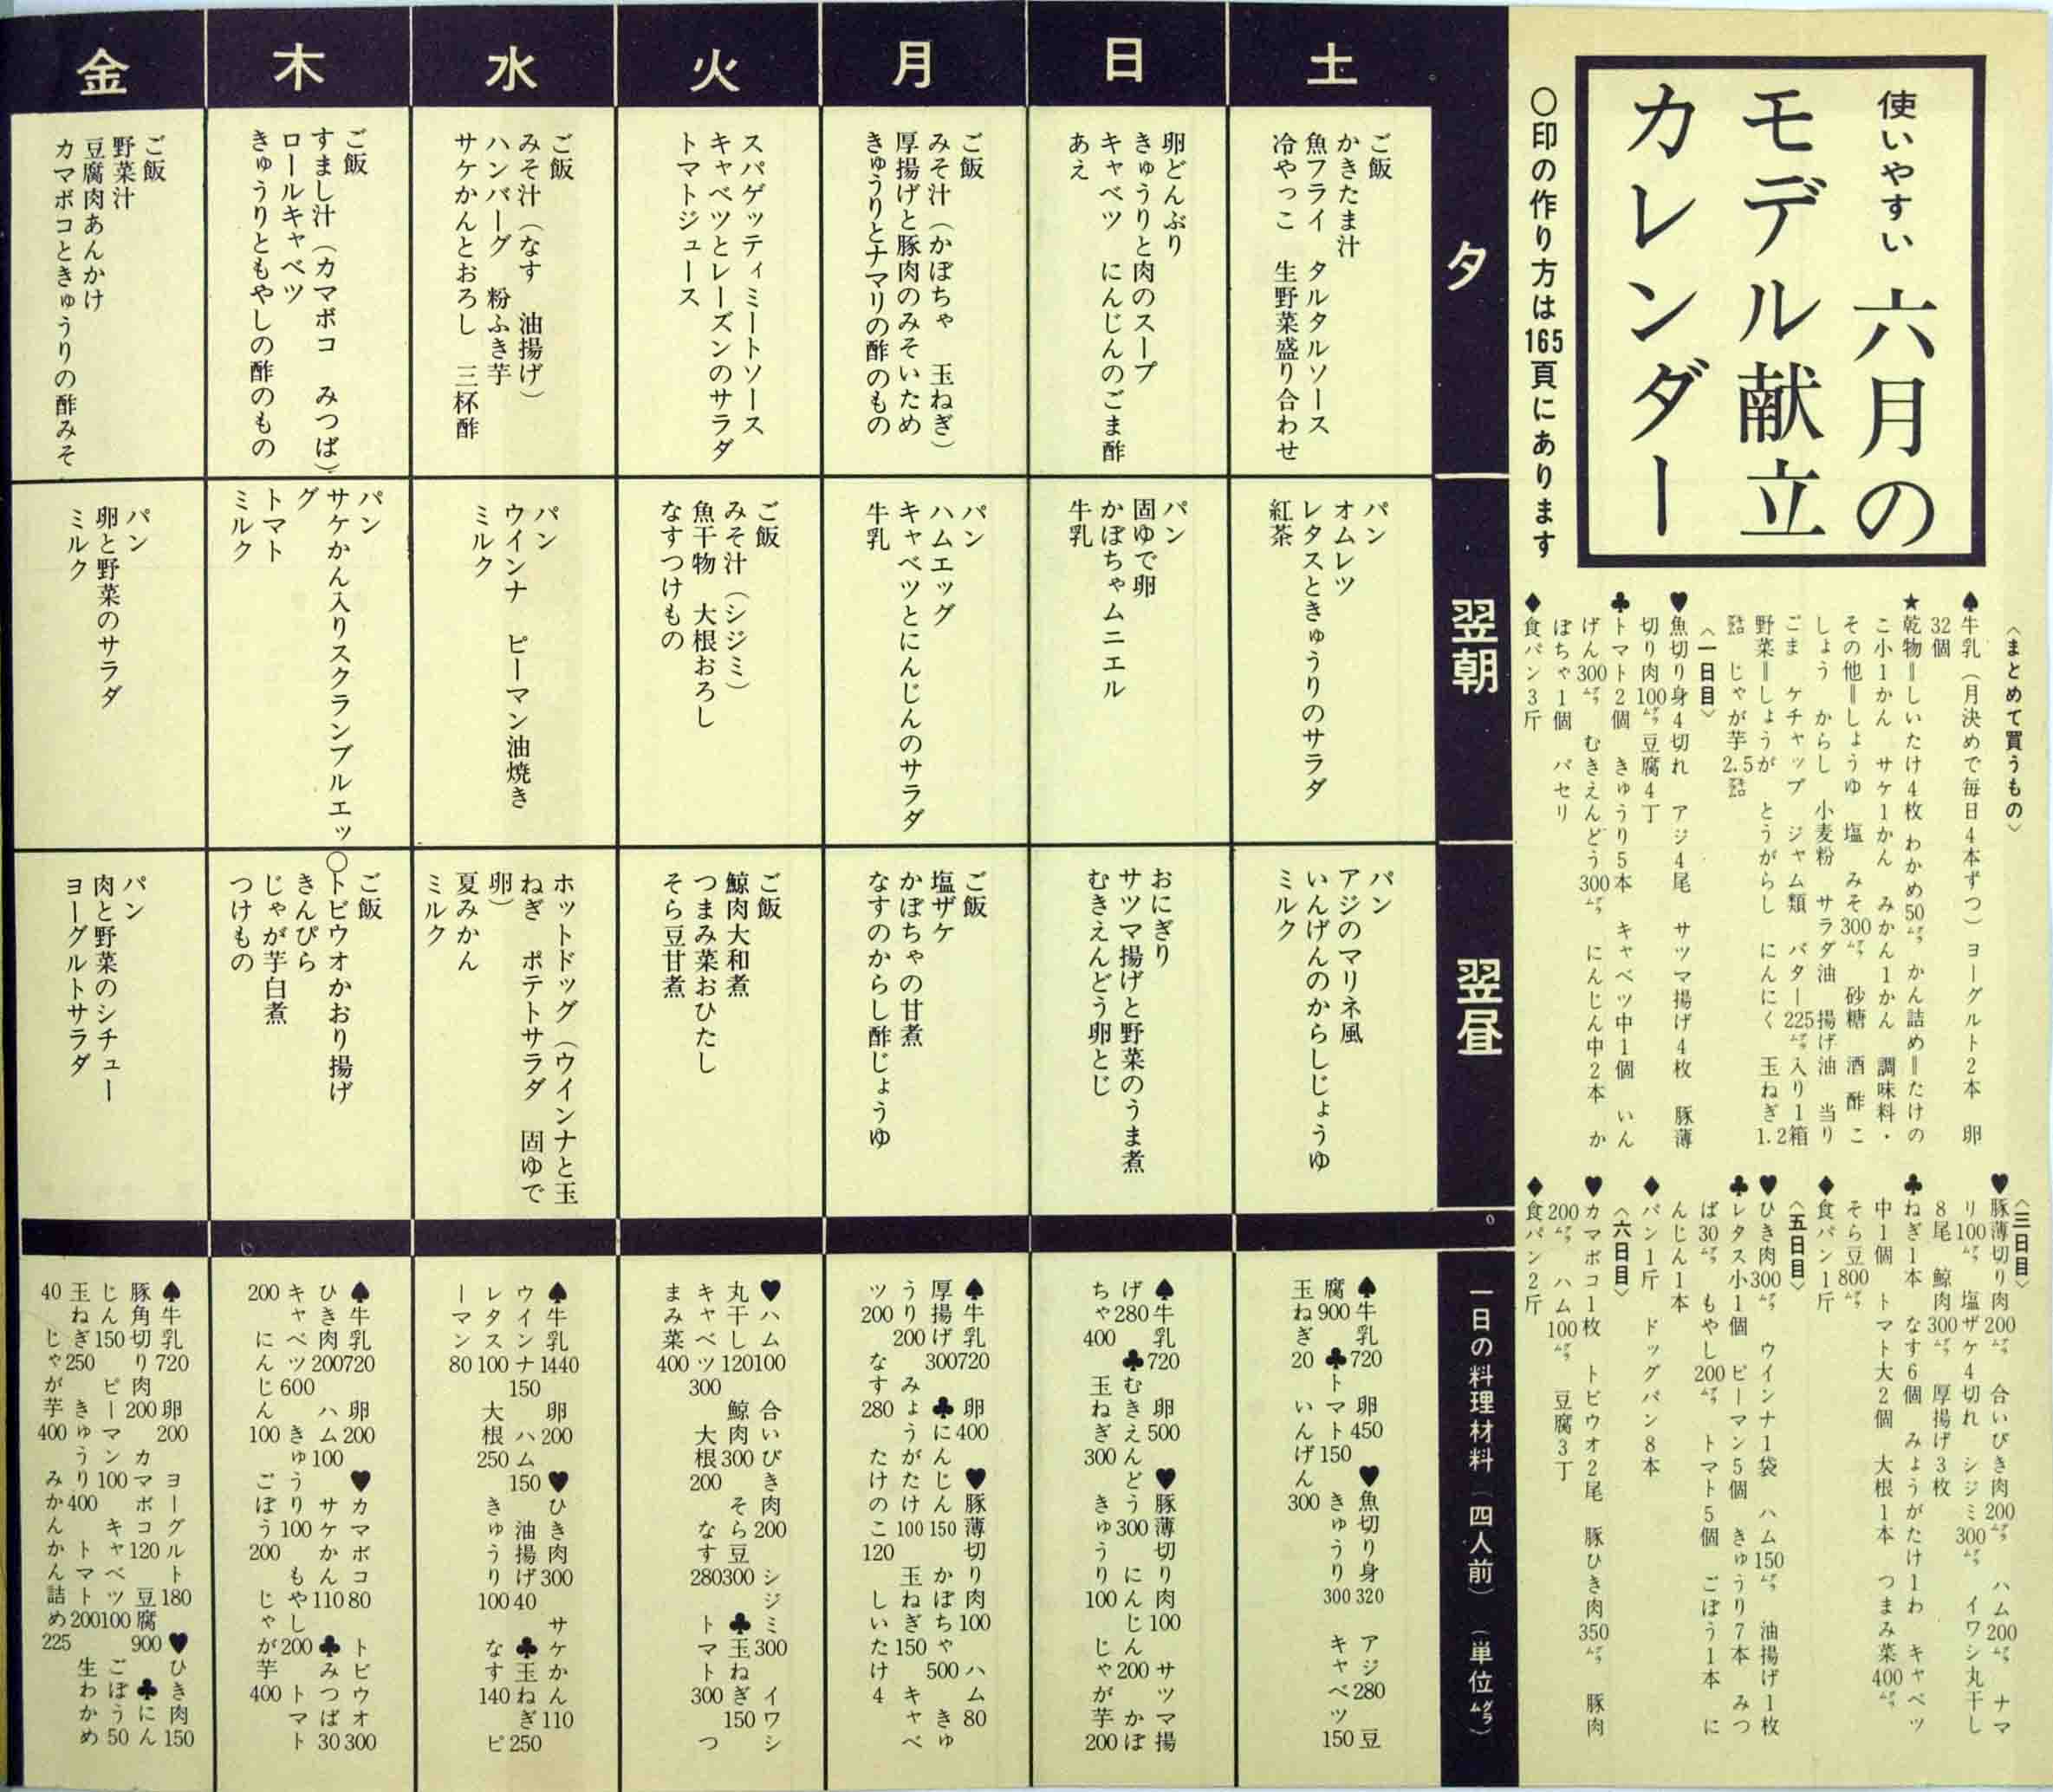 使いやすい 六月の
モデル献立
カレンダー
〇印の作り方は165頁にあります
〈まとめて買うもの〉
♠牛乳(月決めで毎日4本ずつ) ヨーグルト2本 卵
32個
★乾物=しいたけ4枚 わかめ50㌘ かん詰め=たけの
こ小1かん サケ1かん みかん1かん 調味料・
その他=しょうゆ 塩 みそ300㌘ 砂糖 酒 酢 こ
しょう からし 小麦粉 サラダ油 揚げ油 当り
ごま ケチャップ ジャム類 バター225㌘入り1箱
野菜=しょうが とうがらし にんにく 玉ねぎ1.2
㌔ じゃが芋2.5㌔
〈一日目〉
♥魚切り身4切れ アジ4尾 サツマ揚げ4枚 豚薄
切り肉100㌘ 豆腐4丁
♣トマト2個 きゅうり5本 キャベツ中1個 いん
げん300㌘ むきえんどう300㌘ にんじん中2本 か
ぼちゃ1個 パセリ
♦食パン3斤
〈三日目〉
♥豚薄切り肉200㌘ 合いびき肉200㌘ ハム200㌘ ナマ
リ100㌘ 塩ザケ4切れ シジミ300㌘ イワシ丸干し
8尾 鯨肉300㌘ 厚揚げ3枚
♣ねぎ1本 なす6個 みょうがたけ1わ キャベツ
中1個 トマト大2個 大根1本 つまみ菜400㌘
そら豆800㌘
♦食パン1斤
〈五日目〉
♥ひき肉300㌘ ウインナ1袋 ハム150㌘ 油揚げ1枚
♣レタス小1個 ピーマン5個 きゅうり7本 みつ
ば30㌘ もやし200㌘ トマト5個 ごぼう1本 に
んじん1本
♦パン1斤 ドッグパン8本
〈六日目〉
♥カマボコ1枚 トビウオ2尾 豚ひき肉350㌘ 豚肉
200㌘ ハム100㌘ 豆腐3丁
♦食パン2斤
夕
翌朝
翌昼
一日の料理材料(四人前)(単位㌘)
土
ご飯
かきたま汁
魚フライ タルタルソース
冷やっこ 生野菜盛り合わせ
パン
オムレツ
レタスときゅうりのサラダ
紅茶
パン
アジのマリネ風
いんげんのからしじょうゆ
ミルク
♠牛乳720 卵450 ♥魚切り身320 アジ280 豆
腐900 ♣トマト150 きゅうり300 キャベツ150
玉ねぎ20 いんげん300
日
卵どんぶり
きゅうりと肉のスープ
キャベツ にんじんのごま酢
あえ
パン
固ゆで卵
かぼちゃムニエル
牛乳
おにぎり
サツマ揚げと野菜のうま煮
むきえんどう卵とじ
♠牛乳720 卵500 ♥豚薄切り肉100 サツマ揚
げ280 ♣むきえんどう300 にんじん200 かぼ
ちゃ400 玉ねぎ300 きゅうり100 じゃが芋200
月
ご飯
みそ汁(かぼちゃ 玉ねぎ)
厚揚げと豚肉のみそいため
きゅうりとナマリの酢のもの
パン
ハムエッグ
キャベツとにんじんのサラダ
牛乳
ご飯
塩ザケ
かぼちゃの甘煮
なすのからし酢じょうゆ
♠牛乳720 卵400 ♥豚薄切り肉100 ハム80
厚揚げ300 ♣にんじん150 かぼちゃ500 きゅ
うり200 みょうがたけ100 玉ねぎ150 キャベ
ツ200 なす280 たけのこ120 しいたけ4
火
スパゲッティミートソース
キャベツとレーズンのサラダ
トマトジュース
ご飯
みそ汁(シジミ)
魚干物 大根おろし
なすつけもの
ご飯
鯨肉大和煮
つまみ菜おひたし
そら豆甘煮
♥ハム100 合いびき肉200 シジミ300 イワシ
丸干し120 鯨肉300 そら豆300 ♣玉ねぎ150
キャベツ300 大根200 なす280 トマト300 つ
まみ菜400
水
ご飯
みそ汁(なす 油揚げ)
ハンバーグ 粉ふき芋
サケかんとおろし 三杯酢
パン
ウインナ ピーマン油焼き
ミルク
ホットドッグ(ウインナと玉
ねぎ ポテトサラダ 固ゆで
卵)
夏みかん
ミルク
♠牛乳1440 卵200 ♥ひき肉300 サケかん110
ウインナ150 ハム150 油揚げ40 ♣玉ねぎ250
レタス100 大根250 きゅうり100 なす140 ピ
ーマン80
木
ご飯
すまし汁(カマボコ みつば)
ロールキャベツ
きゅうりともやしの酢のもの
パン
サケかん入りスクランブルエッ
グ
トマト
ミルク
ご飯
〇トビウオかおり揚げ
きんぴら
じゃが芋白煮
つけもの
♠牛乳720 卵200 ♥カマボコ80 トビウオ300
ひき肉200 ハム100 サケかん110 ♣みつば30
キャベツ600 きゅうり100 もやし200 トマト
200 にんじん100 ごぼう200 じゃが芋400
金
ご飯
野菜汁
豆腐肉あんかけ
カマボコときゅうりの酢みそ
パン
卵と野菜のサラダ
ミルク
パン
肉と野菜のシチュー
ヨーグルトサラダ
♠牛乳720 卵200 ヨーグルト180 ♥ひき肉150
豚角切り肉200 カマボコ120 豆腐900 ♣にん
じん150 ピーマン100 キャベツ100 ごぼう50
玉ねぎ250 きゅうり400 トマト200 生わかめ
40 じゃが芋400 みかんかん詰め225